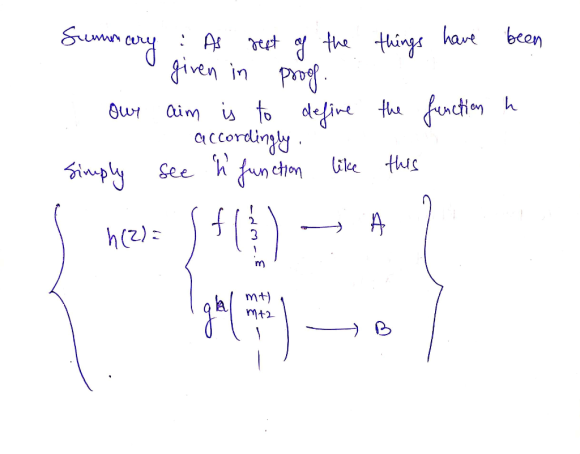 Summary : As rest of the things have been
given in proof.
Our aim is to define the function h
accordingly.
Simply see 'h' function like this
h(z) = { f ( 1 2 3 ¦ m ) → A
g ( m+1 m+2 ¦ ¦ ) → B